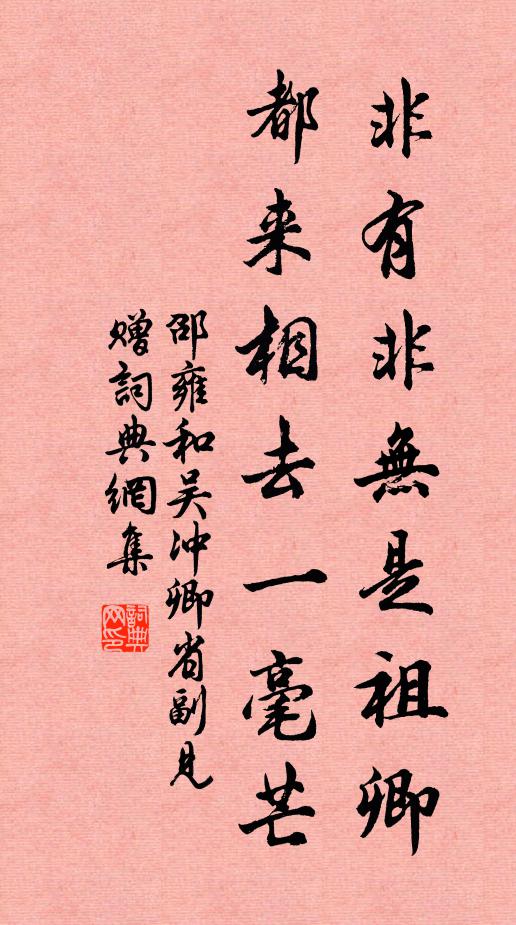 非有非無是祖卿
都来相去一毫芒
邵雍和吴冲卿省副見
赠詞典網集
詞典网印